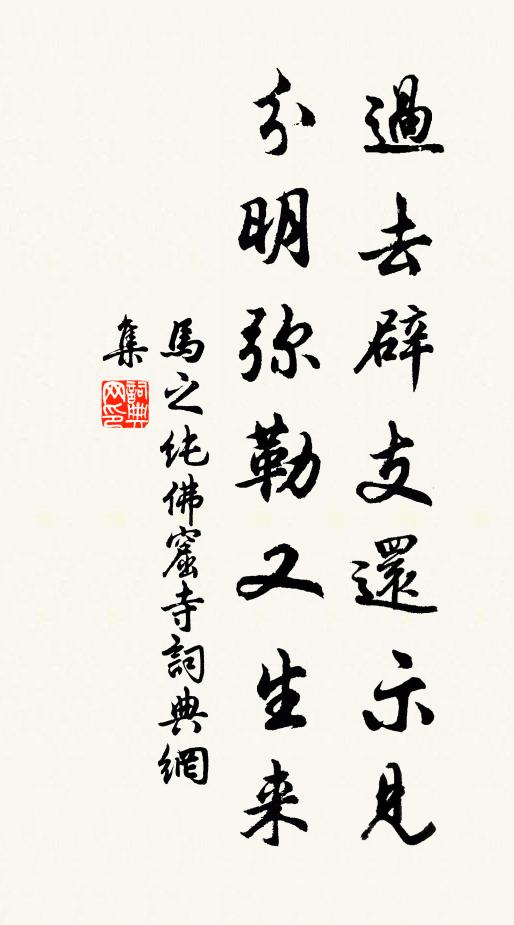 過去辟支還示見
分明弥勒又生来
馬之純佛窟寺詞典網
集
詞典网印